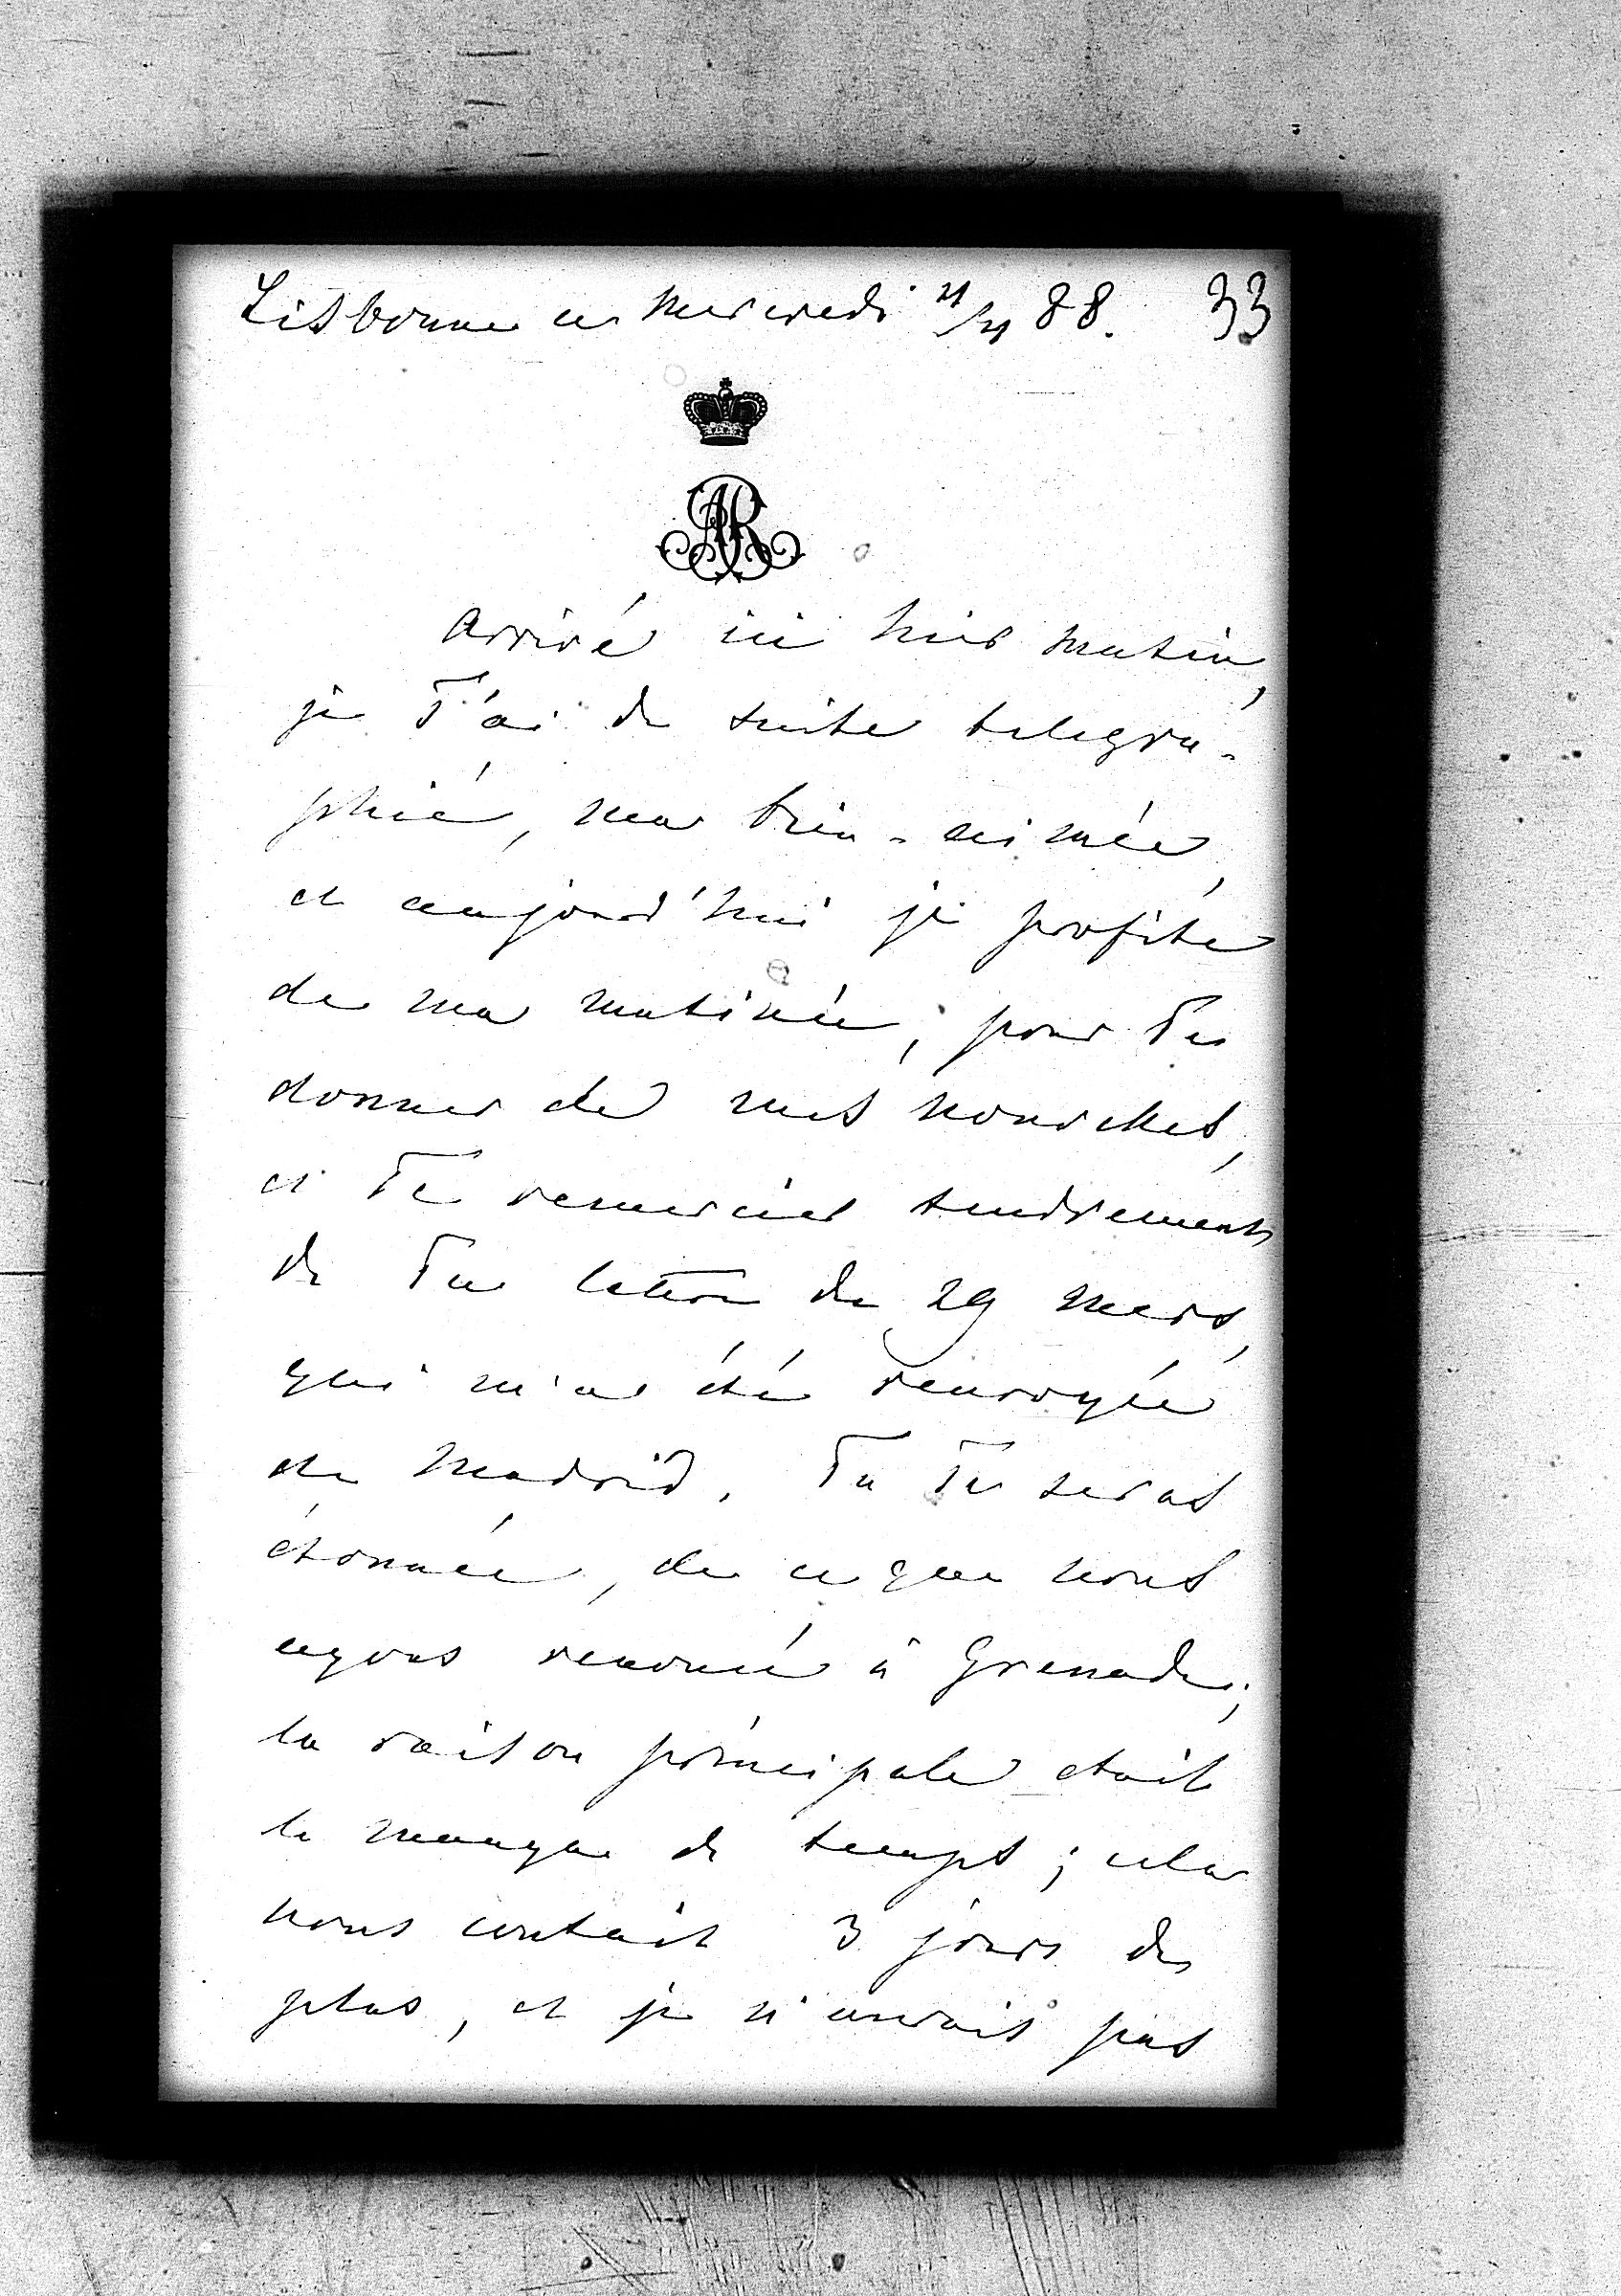 Lisbonne ce Mercredi 11/4 88. 33
AR
Arrivé ici hier matin,
je T'ai de suite telegra-
phié, ma bien-aimée,
et aujourd'hui je profite
de ma matinée, pour Te
donner de mes nouvelles,
et Te remercier tendrement
de Ta lettre du 29 Mars,
qui m'a été renvoyée
de Madrid. Tu Te seras
étonnée, de ce que nous
ayons renoncé à Grenade;
la raison principale était
le manque de temps; cela
nous coutait 3 jours de
plus, et je n'aurais pas